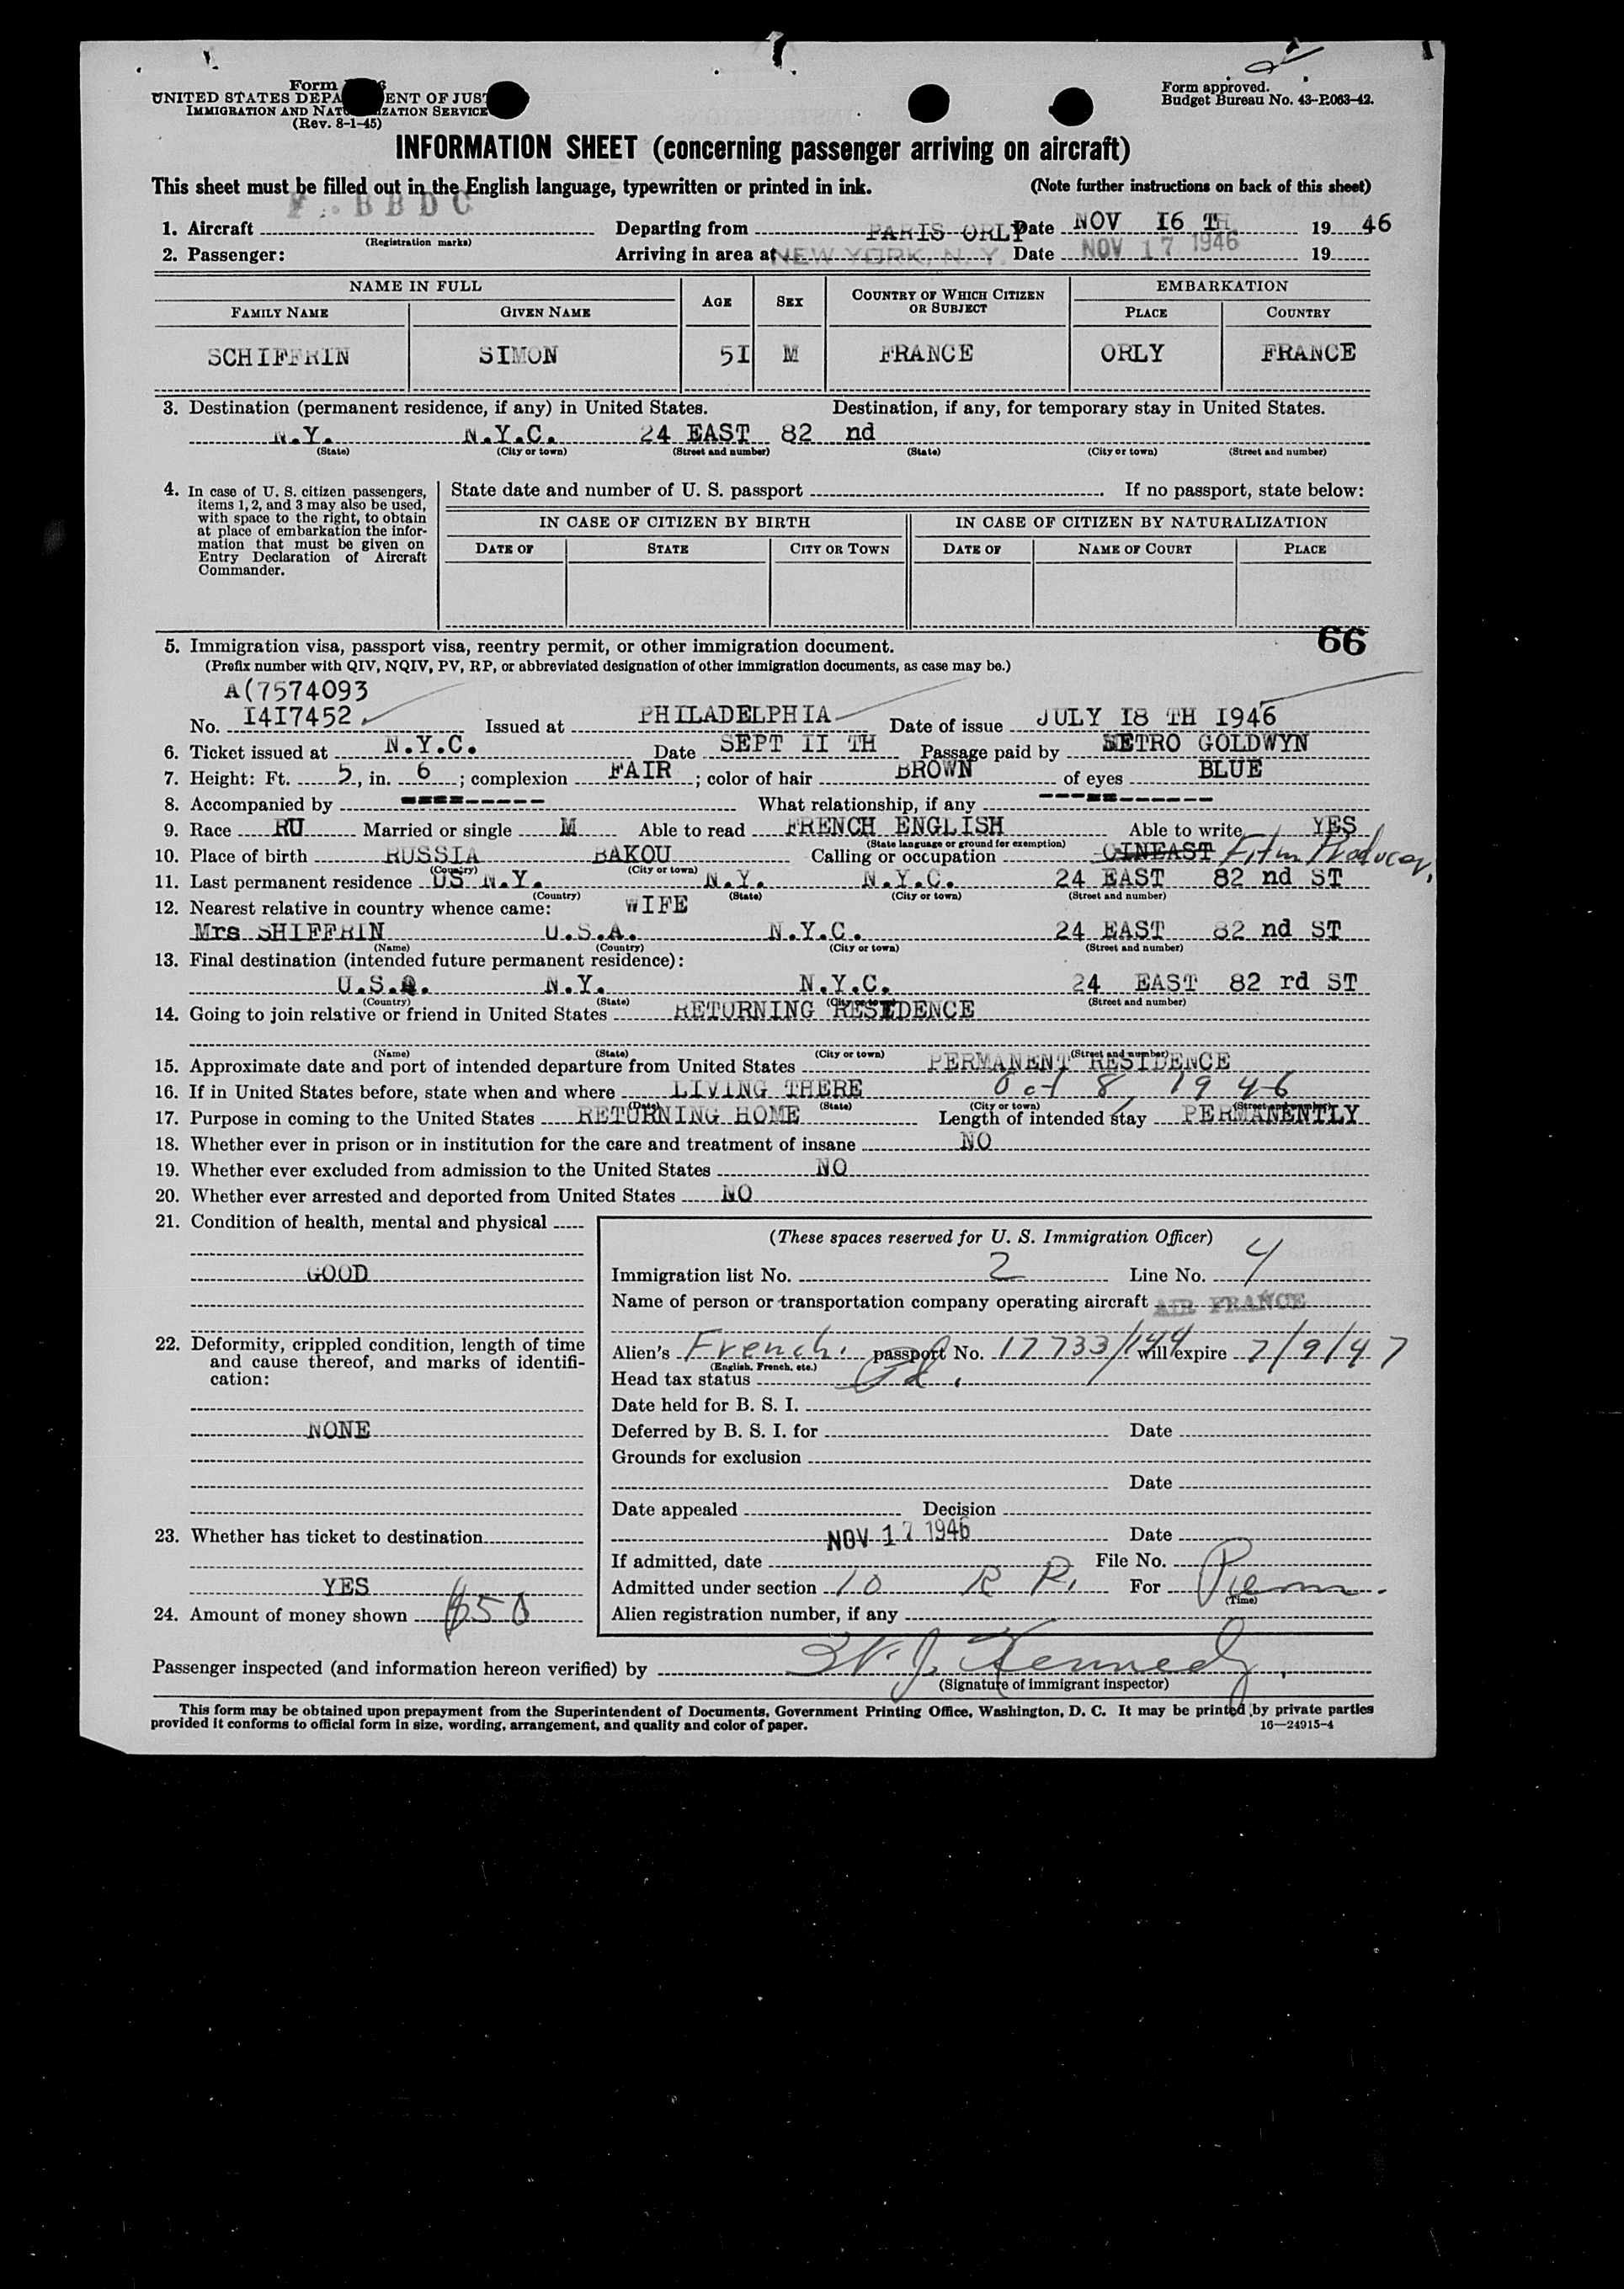 Form
UNITED STATES DEPA ENT OF JUS
IMMIGRATION AND NAT IZATION SERVICE
(Rev. 8-1-45)
Form approved.
Budget Bureau No. 43-R063-42.
INFORMATION SHEET (concerning passenger arriving on aircraft)
This sheet must be filled out in the English language, typewritten or printed in ink. (Note further instructions on back of this sheet)
F. BBDC
1. Aircraft Departing from PARIS ORLY Date NOV I6 TH 19 46
(Registration marks)
2. Passenger: Arriving in area at NEW YORK, N. Y. Date NOV 17 1946 19
NAME IN FULL AGE SEX COUNTRY OF WHICH CITIZEN OR SUBJECT EMBARKATION
FAMILY NAME GIVEN NAME PLACE COUNTRY
SCHIFFRIN SIMON 5I M FRANCE ORLY FRANCE
3. Destination (permanent residence, if any) in United States. Destination, if any, for temporary stay in United States.
N.Y. N.Y.C. 24 EAST 82 nd
(State) (City or town) (Street and number) (State) (City or town) (Street and number)
4. In case of U. S. citizen passengers, items 1, 2, and 3 may also be used, with space to the right, to obtain at place of embarkation the information that must be given on Entry Declaration of Aircraft Commander.
State date and number of U. S. passport . If no passport, state below:
IN CASE OF CITIZEN BY BIRTH IN CASE OF CITIZEN BY NATURALIZATION
DATE OF STATE CITY OR TOWN DATE OF NAME OF COURT PLACE
66
5. Immigration visa, passport visa, reentry permit, or other immigration document.
(Prefix number with QIV, NQIV, PV, RP, or abbreviated designation of other immigration documents, as case may be.)
A(7574093
No. I4I7452 Issued at PHILADELPHIA Date of issue JULY I8 TH I946
6. Ticket issued at N.Y.C. Date SEPT II TH Passage paid by METRO GOLDWYN
7. Height: Ft. 5, in. 6; complexion FAIR; color of hair BROWN of eyes BLUE
8. Accompanied by --------- What relationship, if any ----------
9. Race RU Married or single M Able to read FRENCH ENGLISH Able to write YES
(State language or ground for exemption)
10. Place of birth RUSSIA BAKOU Calling or occupation CINEAST Film Producer.
(Country) (City or town)
11. Last permanent residence US N.Y. N.Y. N.Y.C. 24 EAST 82 nd ST
(Country) (State) (City or town) (Street and number)
12. Nearest relative in country whence came: WIFE
Mrs SHIFFRIN U.S.A. N.Y.C. 24 EAST 82 nd ST
(Name) (Country) (City or town) (Street and number)
13. Final destination (intended future permanent residence):
U.S.A. N.Y. N.Y.C. 24 EAST 82 rd ST
(Country) (State) (City or town) (Street and number)
14. Going to join relative or friend in United States RETURNING RESIDENCE
(Name) (State) (City or town) (Street and number)
15. Approximate date and port of intended departure from United States PERMANENT RESIDENCE
16. If in United States before, state when and where LIVING THERE Oct 8, 1946
(Date) (State) (City or town) (Street and number)
17. Purpose in coming to the United States RETURNING HOME Length of intended stay PERMANENTLY
18. Whether ever in prison or in institution for the care and treatment of insane NO
19. Whether ever excluded from admission to the United States NO
20. Whether ever arrested and deported from United States NO
21. Condition of health, mental and physical
GOOD
22. Deformity, crippled condition, length of time and cause thereof, and marks of identification:
NONE
23. Whether has ticket to destination
YES
24. Amount of money shown $50
(These spaces reserved for U. S. Immigration Officer)
Immigration list No. 2 Line No. 4
Name of person or transportation company operating aircraft AIR FRANCE
Alien's French passport No. 17733/144 will expire 7/9/47
(English, French, etc.)
Head tax status Pd.
Date held for B. S. I.
Deferred by B. S. I. for Date
Grounds for exclusion
Date
Date appealed Decision
NOV 17 1946 Date
If admitted, date File No.
Admitted under section 10 R P. For Perm.
(Time)
Alien registration number, if any
Passenger inspected (and information hereon verified) by W. J. Kennedy
(Signature of immigrant inspector)
This form may be obtained upon prepayment from the Superintendent of Documents, Government Printing Office, Washington, D. C. It may be printed by private parties
provided it conforms to official form in size, wording, arrangement, and quality and color of paper. 16—24915-4